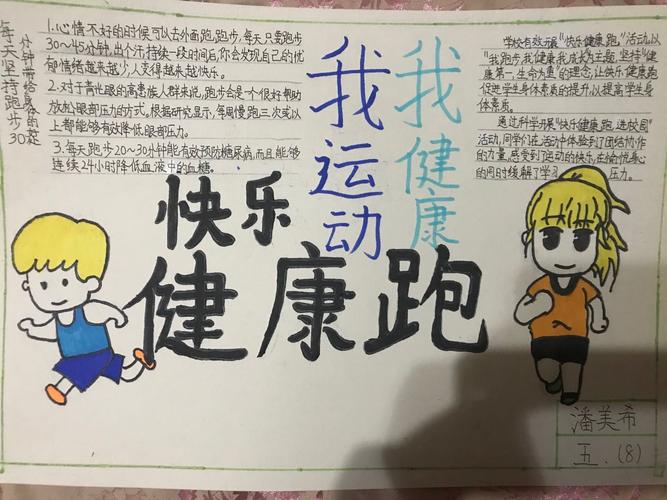 每天坚持跑步30
分钟带给身体的好处
1.心情不好的时候可以去外面跑跑步,每天只需跑步
30~45分钟,出个汗,持续一段时间后,你会发现自己的忧
郁情绪越来越少,人变得越来越快乐。
2.对于青光眼的高患族人群来说,跑步会是一个很好帮助
放松眼部压力的方式。根据研究显示,每周慢跑三次或以
上都能够有效降低眼部压力。
3.每天跑步20~30分钟能有效预防糖尿病,而且能够
连续24小时降低血液中的血糖。
我运动
我健康
学校有效开展"快乐健康跑"活动,以
"我跑步,我健康,我成长"为主题,坚持"健
康第一,生命为重"的理念,让快乐、健康跑
促进学生身体素质的提升,以提高学生身
体素质。
通过科学开展"快乐健康跑,进校园"
活动,同学们在活动中体验到了团结协作
的力量,感受到了运动的快乐,在愉悦身心
的同时缓解了学习 压力。
快乐
健康跑
潘美希
五.(8)